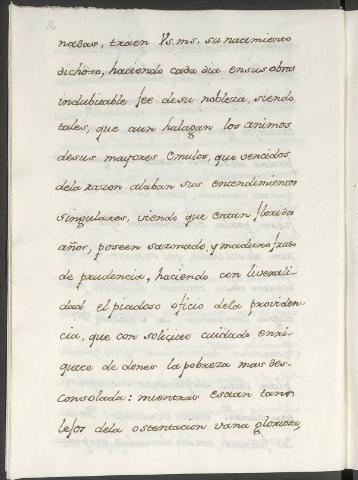 nadas, traen Vs. ms, su nacimiento
dichoso, haciendo cada dia en sus obras
indubitable fee de su nobleza, siendo
tales, que aun halagan los animos
de sus mayores Emulos, que vencidos
dela razon alaban sus entendimientos
singulares, viendo que en tan floridos
años, poseen sazonado, y maduro fruto
de prudencia, haciendo con liverali-
dad el piadoso oficio dela providen-
cia, que con soliçito cuidado enri-
quece de dones la pobreza mas des-
consolada: mientras estan tan
lejos dela ostentacion vana gloriosa,